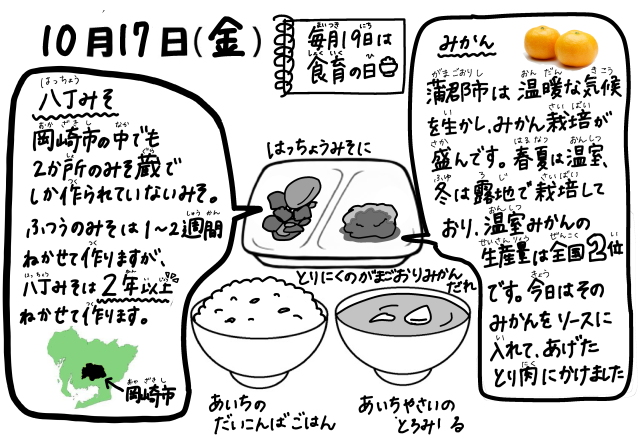 10月17日(金)
毎月19日は
食育の日
八丁みそ
岡崎市の中でも
2か所のみそ蔵で
しか作られていないみそ。
ふつうのみそは1~2週間
ねかせて作りますが、
八丁みそは2年以上
ねかせて作ります。
岡崎市
はっちょうみそに
とりにくのがまごおりみかん
だれ
あいちの
だいこんばごはん
あいちやさいの
とろみ汁
みかん
蒲郡市は温暖な気候
を生かし、みかん栽培が
盛んです。春夏は温室、
冬は露地で栽培して
おり、温室みかんの
生産量は全国2位
です。今日はその
みかんをソースに
入れて、あげた
とり肉にかけました